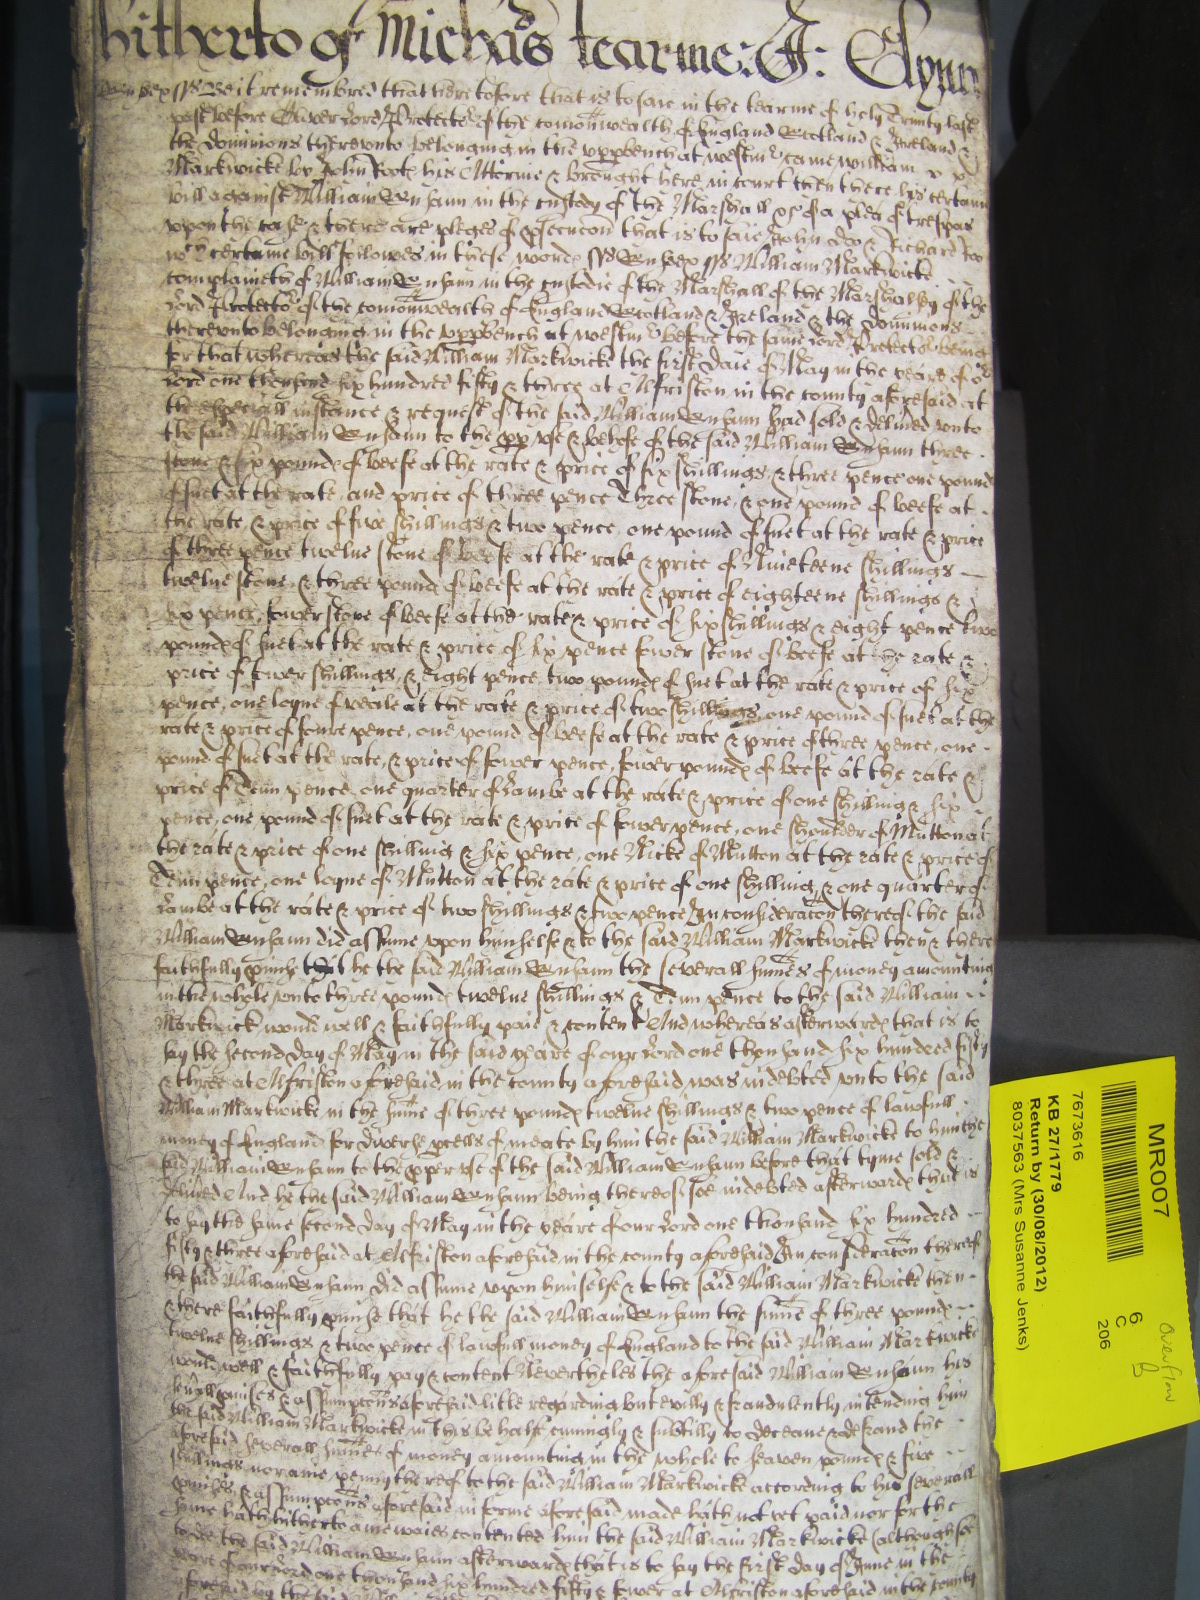 hitherto of Michās tearme: J: Glynn
Sussex ss Be it remembred that heretofore that is to saie in the tearme of holy Trinity last
past before Oliver Lord Protector of the comonwealth of England Scotland & Ireland &
the dominions therevnto belonging in the vpp bench at westmr came william
Markwicke by John Foote his Attornie & brought here in court then there his certain
bill against William in the custody of the Marshall &c of a plea of trespas
vpon the case & there are pleges of psecucon that is to saie John doo & Richard Roo
wch certaine bill followes in these words ss Sussex ss William Markwicke
complaineth of William in the custodie of the Marshall of the Marshalsey of the
Lord Protector of the comonwealth of England Scotland & Ireland & the dominions
therevnto belonging in the vpp bench at westmr before the same Lord Protector being
for that whereas the said William Markwicke the first daie of May in the yeare of or
Lord one thousand six hundred fifty & three at Alfriston in the county aforesaid at
the speciall instance & request of the said William had sold & delived vnto
the said William to the pp vse & behofe of the said William three
stone & six pounds of beefe at the rate & price of six shillings & three pence one pound
of suet at the rate and price of three pence Three stone & one pound of beefe at
the rate & price of five shillings & two pence, one pound of suet at the rate & price
of three pence twelue stone of beefe at the rate & price of Nineteene shillings
twelue stone & three pound of beefe at the rate & price of eighteene shillings &
six pence, fower stone of beefe at the rate & price of six shyllings & eight pence two
pounds of suet at the rate & price of six pence fower stone of beefe at the rate &
price of fower shillings & eight pence, two pounds of suet at the rate & price of six
pence, one loyne of veale at the rate & price of two shillings, one pound of suet at the
rate & price of foure pence, one pound of beefe at the rate & price of three pence, one
pound of suet at the rate, & price of fower pence, fower pounds of beefe at the rate &
price of Tenn pence, one quarter of Lambe at the rate & price of one shilling & six
pence, one pound of suet at the rate & price of fower pence, one shoulder of Mutton at
the rate & price of one shilling & six pence, one Necke of Mutton at the rate & price of
Tenn pence, one loyne of Mutton at the rate & price of one shylling, & one quarter of
Lambe at the rate & price of two shyllings & two pence In consideracon thereof the said
William did assume vpon himselfe & to the said William Markwicke then & there
faithfully pmise that he the said William the severall sumes of money amounting
in the whole vnto three pounds twelue shyllings & Tenn pence to the said William
Markwick would well & faithfully paie & content And whereas afterwards that is to
say the second day of May in the said yeare of our Lord one thousand six hundred fifty
& three at Alfriston aforesaid in the county aforesaid was indebted vnto the said
William Markwicke in the sume of three pounds twelue shyllings & two pence of lawfull
money of England for diverse pcells of meate by him the said William Markwicke to him the
said William to the pper vse of the said William before that tyme sold &
delived And he the said William being thereof soe indebted afterwards that is
to say the same second day of May in the yeare of our Lord one thousand six hundred
fifty & three aforesaid at Alfriston aforesaid in the county aforesaid In consideracon thereof
the said William did assume vpon himselfe & to the said William Markwicke then
& there faithfully pmise that he the said William the sume of three pounds
twelue shyllings & two pence of lawfull money of England to the said William Markwicke
would well & faithfully pay & content Neverthelesse the aforesaid William his
sevall pmises & assumpcons aforesaid little regarding but evilly & fraudulently intending him
the said William Markwicke in this behalfe cuningly & subtilly to deceaue & defraud the
aforesaid severall sumes of money amounting in the whole to seaven pounds & five
shillings nor anie penny thereof to the said William Markwicke according to his severall
pmises & assumpcons aforesaid in forme aforesaid made hath not yet paid nor for the
same hath hitherto anie waies contented him the said William Markwicke (although soe
to doe the said William afterwards that is to say the first day of June in the
yeare of our Lord one thousand six hundred fifty & fower at Alfriston aforesaid in the county
aforesaid by the said
MR007
7673616
KB 27/1779
Return by (30/08/2012)
8037563 (Mrs Susanne Jenks)
6
C
206
Overflow